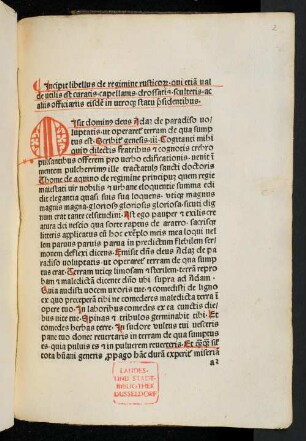 2
Incipit libellus de regimine rusticorum qui etiam val
de utilis est curatis capellanis drossatis scultetis ac
aliis officiariis eisdem in utroque statu presidentibus.
Misit dominus deus Adam de paradiso vo
luptatis ut operaretur terram de qua sump
tus est. Scribitur genesis iii. Cogitanti mihi
quid dilectis fratribus et cognatis crebro
pulsantibus offerem pro verbo edificationis. venit in
mentem pulcherrimus ille tractatus sancti doctoris
Thome de aquino de regimine principum quem regie
maiestati vir nobilis et urbane eloquentie summa edi
dit elegantia quasi suis sua loquens. utique magnus
magna gloriosus gloriosis gloriosa scivit digni
cum erat tante celsitudini. At ego pauper et exilis cre
atura dei nescio qua sorte rapatus de aratro. sacris
litteris applicatus cum hoc exemplo mei mea loqui vel
len parum parvis parua in predictum flebilem ser
monem deflexi dicens. Emisit dominus deus Adam de pa
radiso voluptatis ut operaretur terram de qua sump
tus erat. Terram utique limosam et sterilem terram repro
bam et maledictam dicente domino ubi supra ad Adam.
Quia audisti vocem uxoris tue et comedisti de ligno
ex quo preceperam tibi ne comederes maledicta terra in
opere tuo. In laboribus comedes ex ea cunctis die
bus vite tue. Spinas et tribulos germinabit tibi. Et
comedes herbas terre. In sudore vultus tui vesceris
pane tuo donec revertaris in terram de qua sumptus
es. quia pulvis es et in pulverem reverteris. Et quamquam sit
tota humani generis propago hanc duram experitur miseriam
a2
LANDES-
UND STADT-
BIBLIOTHEK
DÜSSELDORF